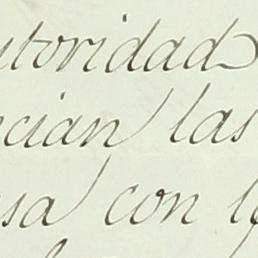 utoridad
ncian las
sa con l